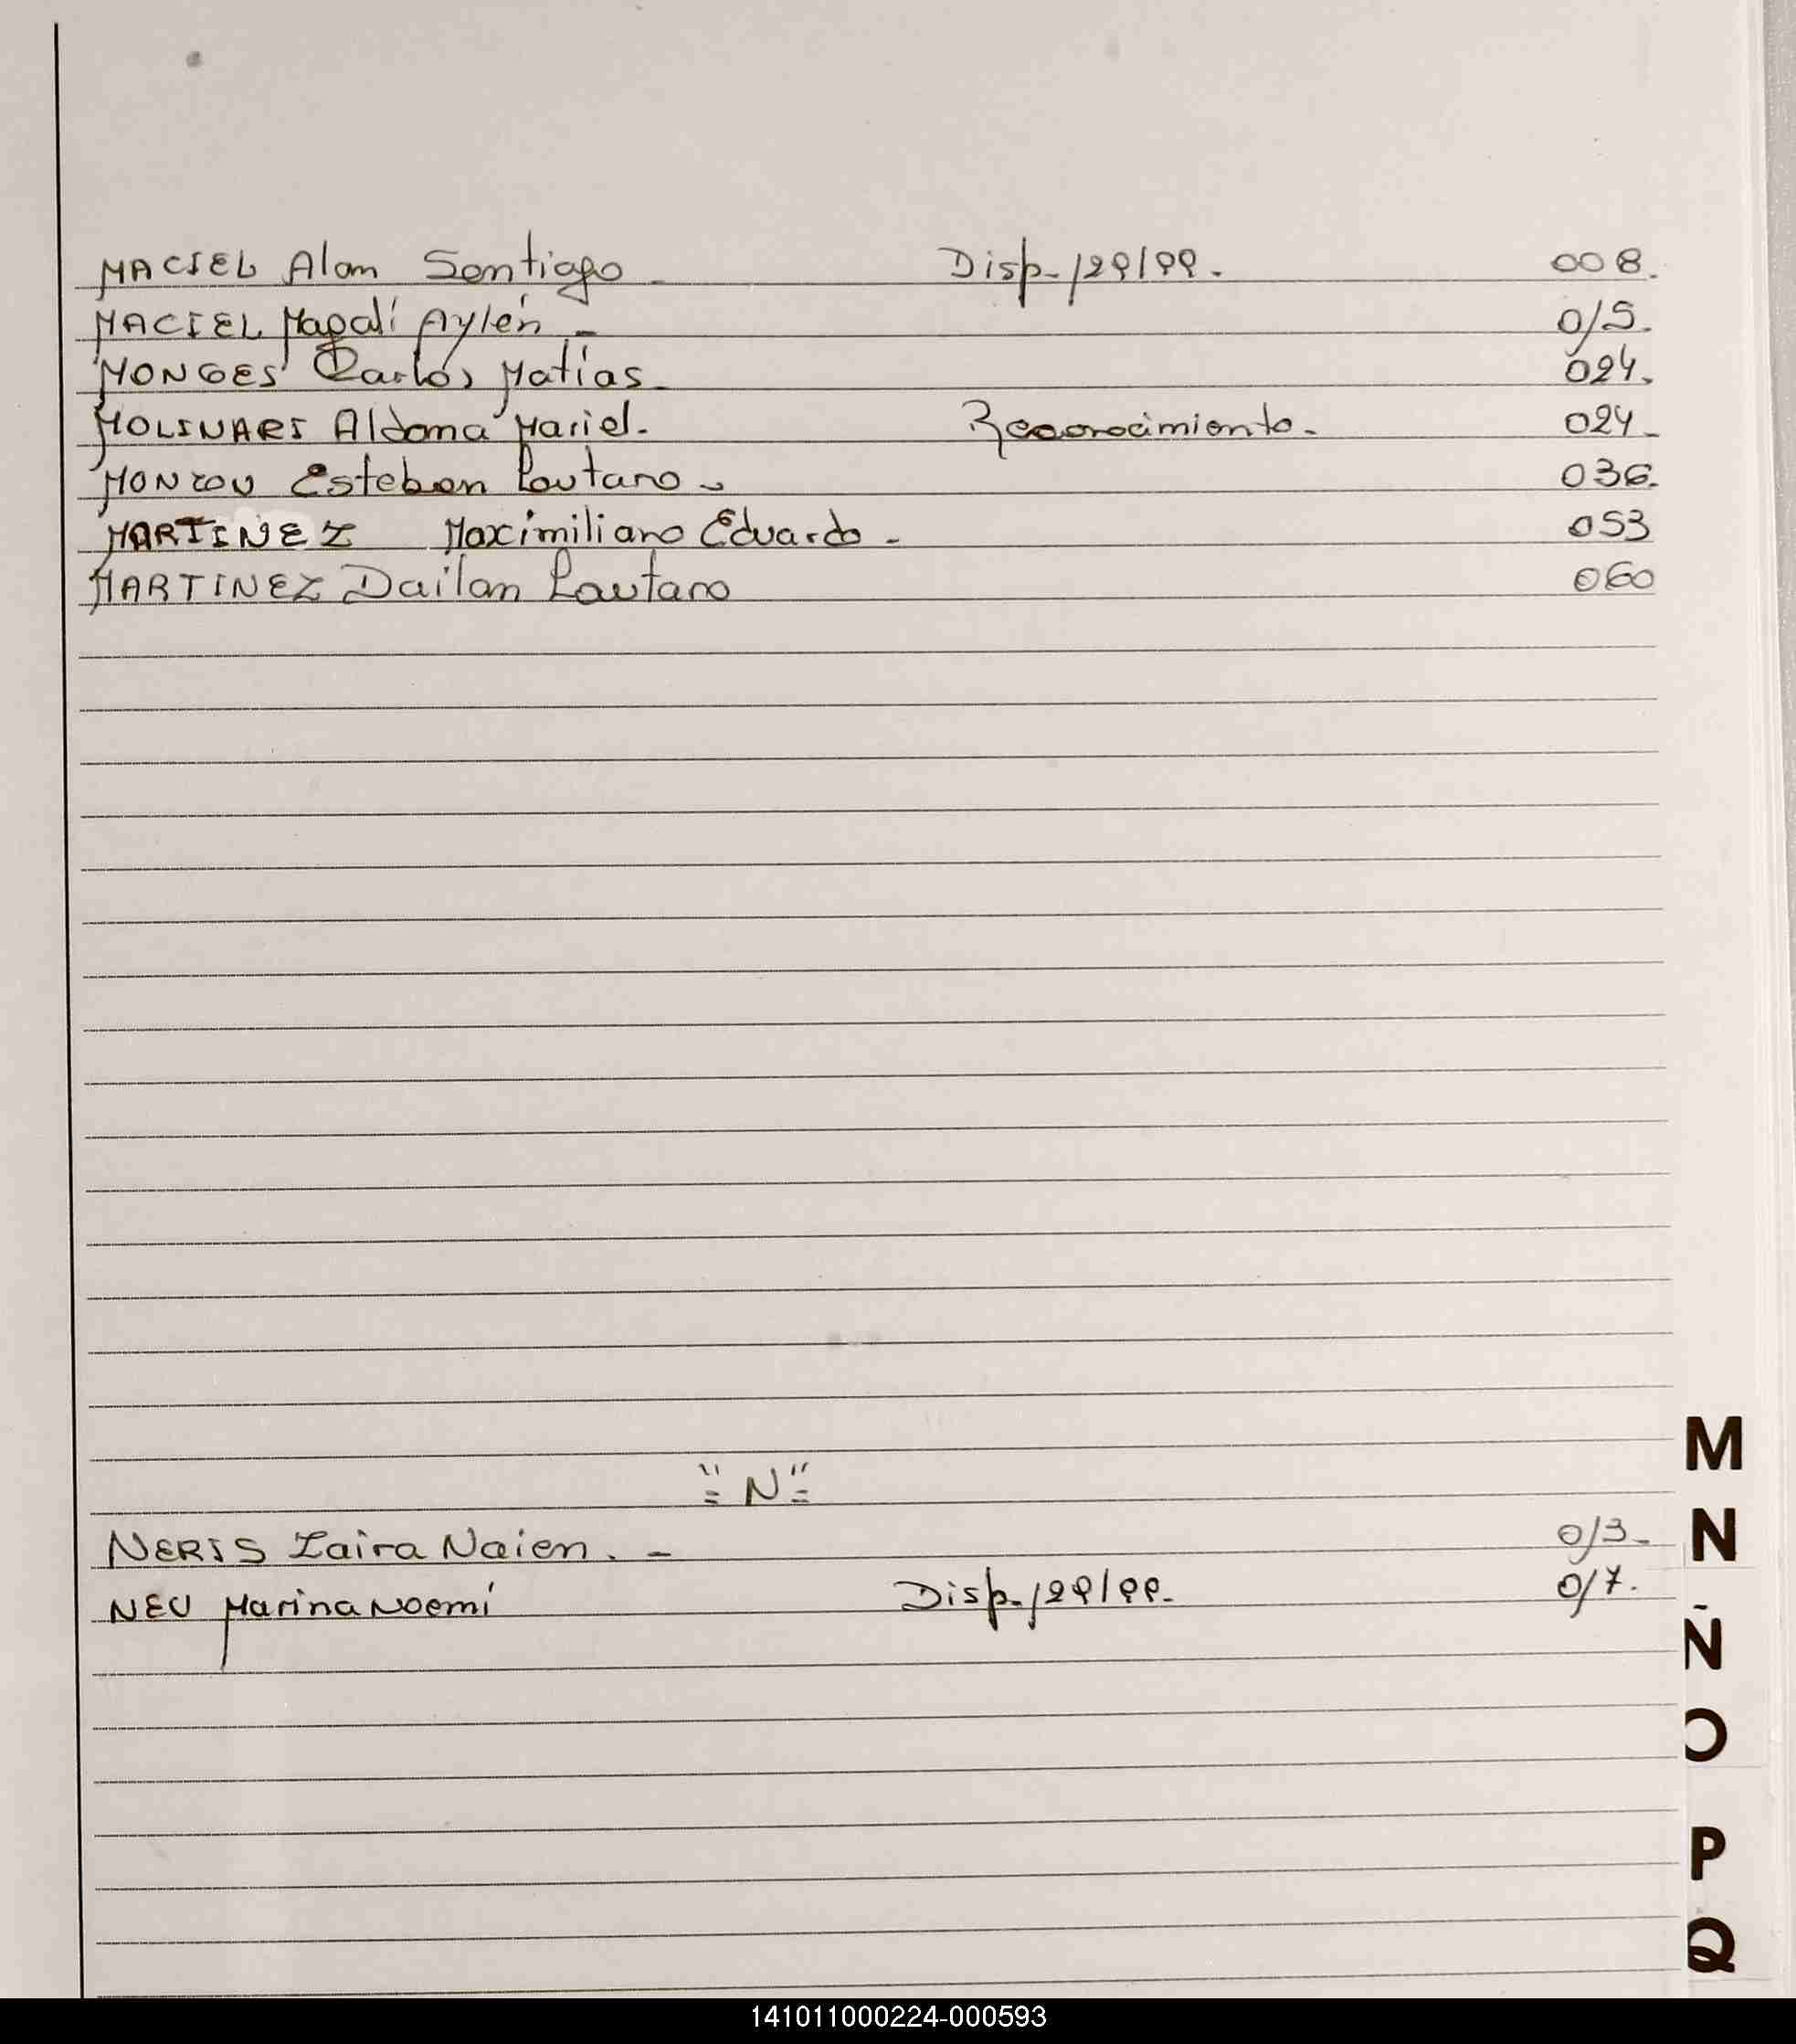 MACIEL Alan Santiago - Disp. 129/99. 008.
MACIEL Magalí Aylén - 015.
MONGES Carlos Matías - 024.
MOLINARI Aldana Mariel. Reconocimiento. 024.
MONZON Esteban Lautaro - 036.
MARTINEZ Maximiliano Eduardo - 053
MARTINEZ Dailan Lautaro 060
M
"N"
NERIS Zaira Naien. - 013. N
NEU Marina Noemí Disp. 129/99. 017.
Ñ
O
P
Q
141011000224-000593